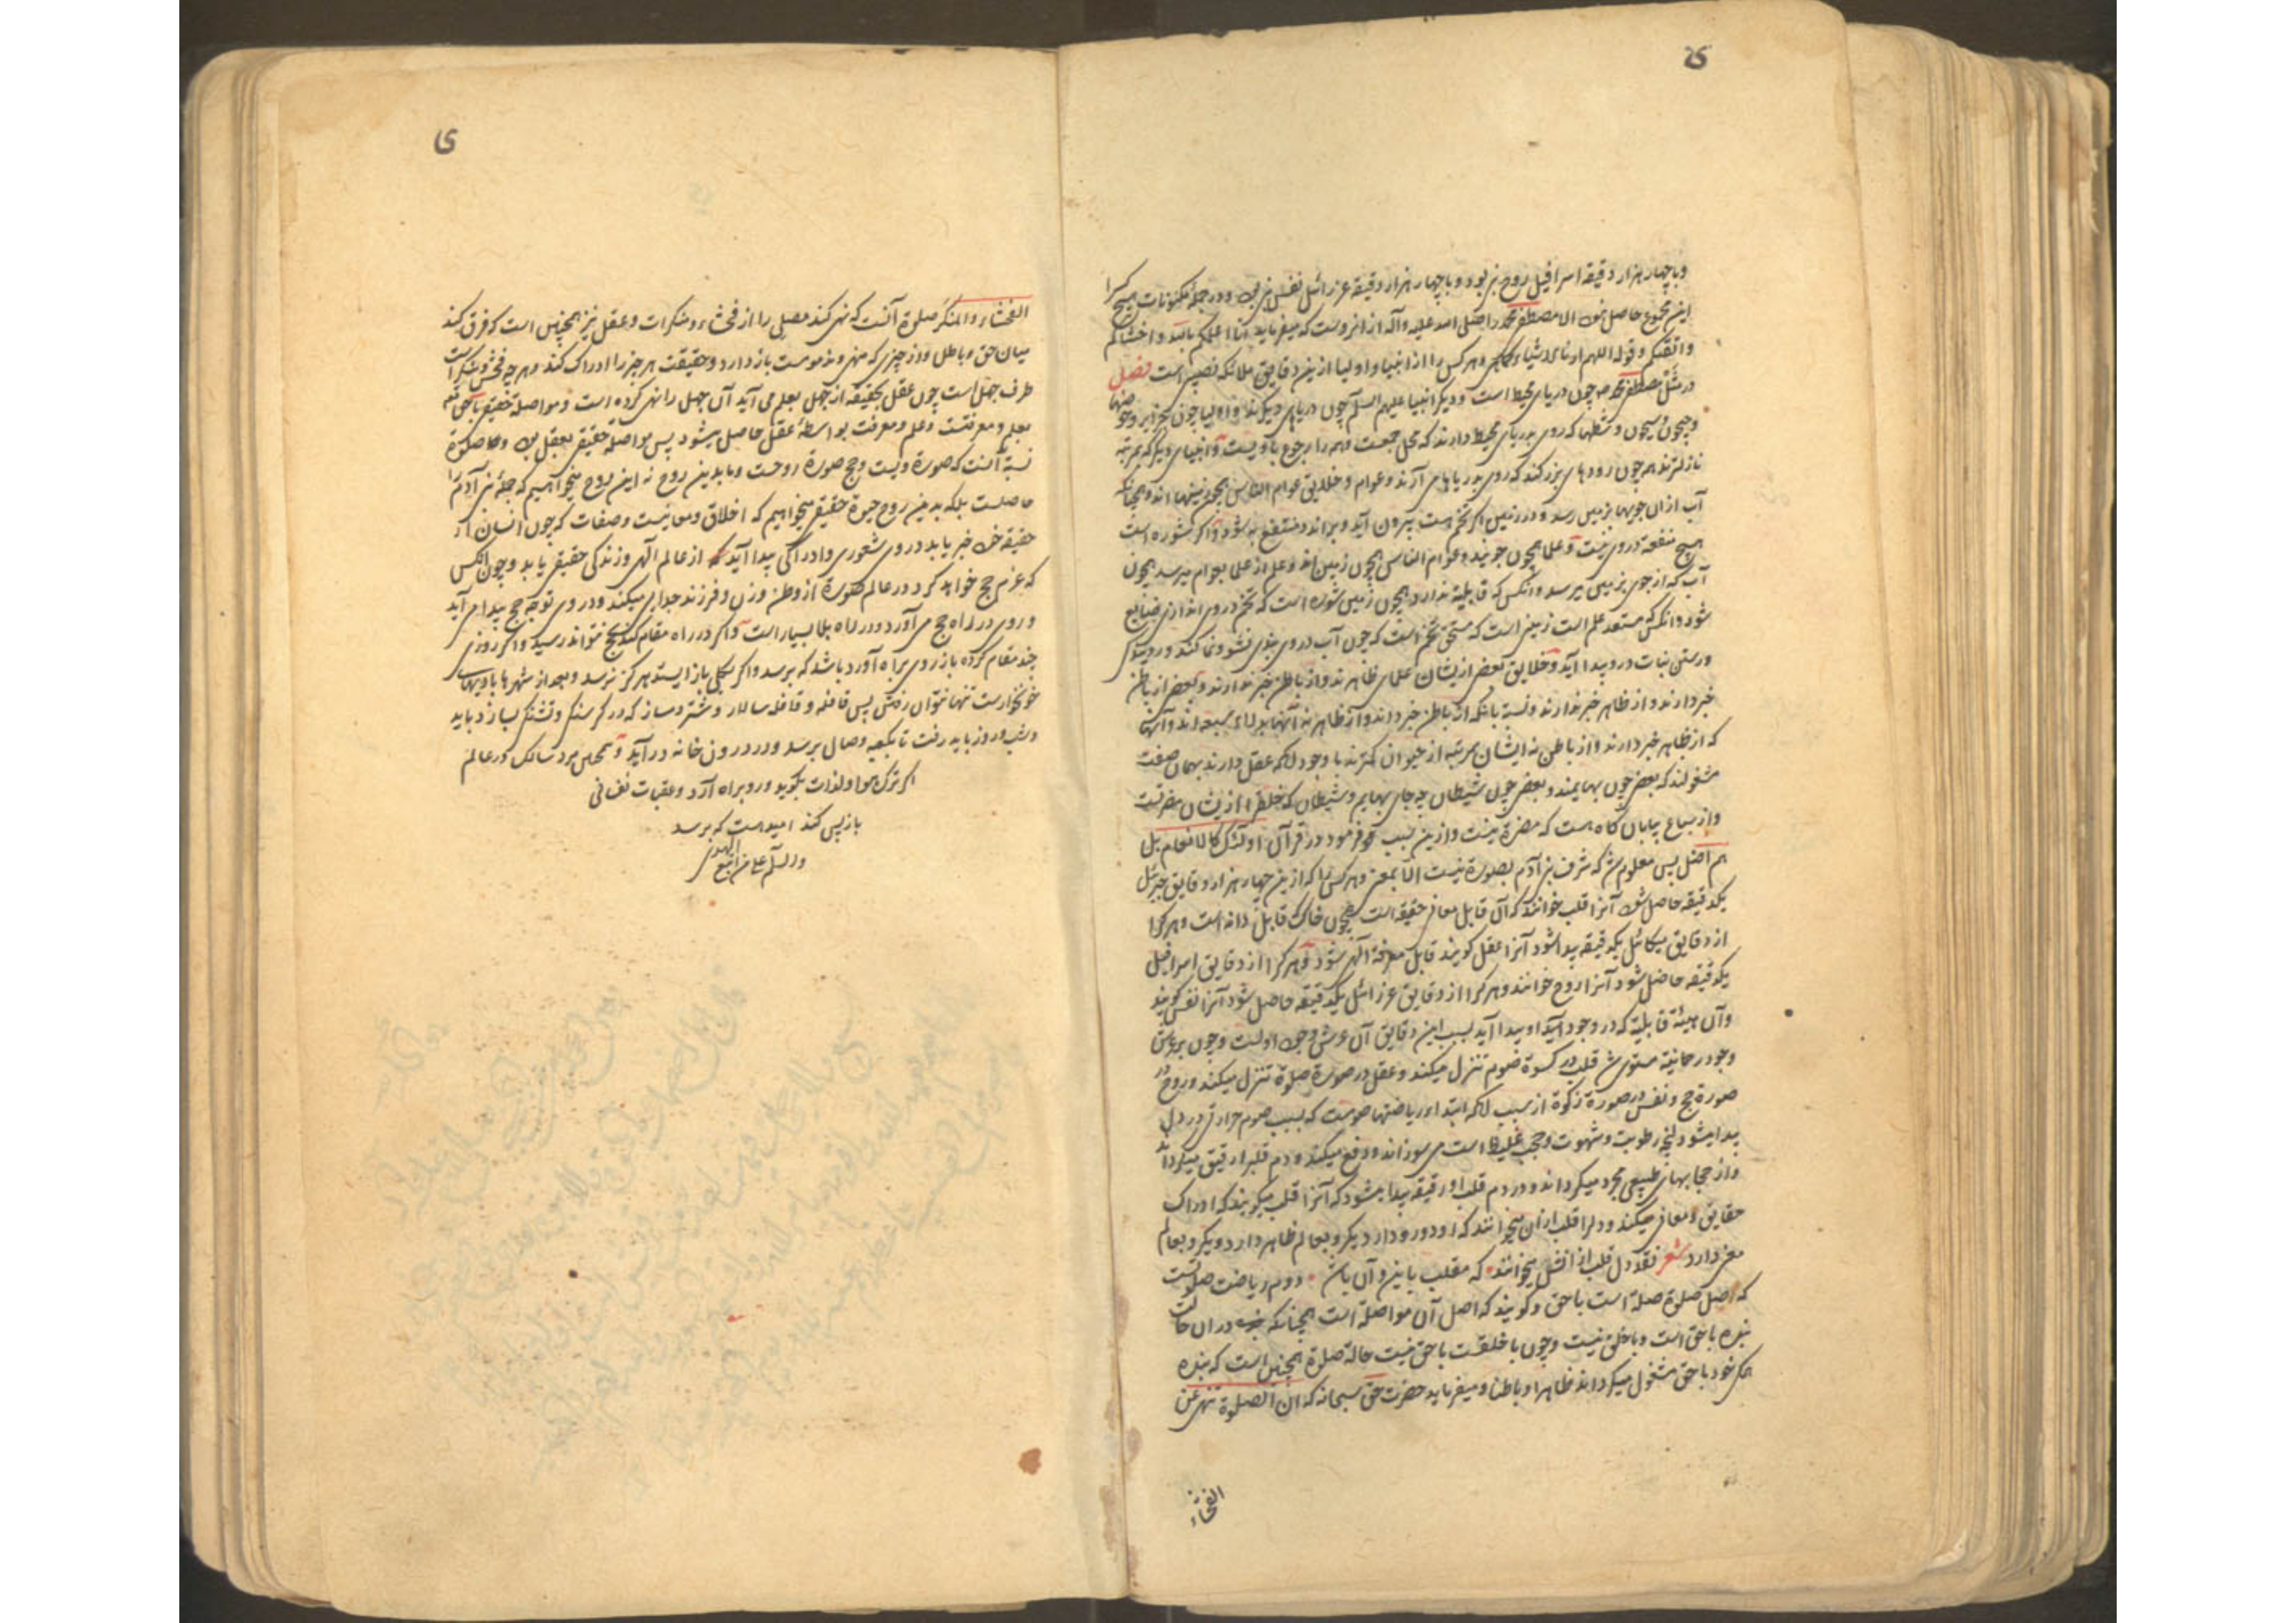 ی
وباچهار هزار دقیقه اسرافیل روح نیز بود و باچهار هزار دقیقه عزرائیل نفس نیز بود و در جمله مکنونات هیچ کسرا
این مجموع حاصل نبود الا مصطفی محمد را صلی الله علیه وآله از انروست که میفرماید انا اعلمکم بالله واخشاکم
واتقیکم وقوله اللهم ارنا الاشیاء کماهی وهر کس را از انبیا واولیا ازین دقایق ملائکه نصیبی است فصل
در مثل مصطفی محمد ص چون دریای محیط است و دیگر انبیا علیهم السلم چون دریاهای دیگرند و اولیا چون
وجیحون وسیحون وشطها که روی بدریای محیط دارند که محل جمعست وهمه را رجوع باویست وانبیای دیگر که بمرتبه
نازلترند همچون رودهای بزرکند که روی بدریاها می آرند وعوام وخلایق عوام الناس همچون زمینها اند وهمچنانکه
آب ازان جویها بزمین رسد ودر زمین اکر تخم است بیرون آید وبراند ومنتفع به شود واکر شوره است
هیچ منفعة دروی نیست وعلما همچون جویند وعوام الناس همچون زمین اند وعلم از علما بعوام میرسد همچون
آب که از جوی بزمین میرسد وانکس که قابلیة ندارد همچون زمین شوره است که تخم دروی اندازی ضایع
شود وانکس که مستعد علم است زمینی است که مستحق تخم است که چون آب دروی بندی نشو ونما کند
ورستن نبات درو پیدا آید وخلایق بعضی ازیشان علمای ظاهرند واز باطن خبر ندارند وبعضی از باطن
خبر دارند واز ظاهر خبر ندارند ونسبة بانکه از باطن خبر دارند واز ظاهر نه آنها
که از ظاهر خبر دارند واز باطن نه ایشان بمرتبه از حیوان کمترند با وجود آنکه عقل دارند بهمان صفت
مشغولند که بعضی چون بهایمند وبعضی چون شیطان چه جای بهایم وشیطان که خلق را ازیشان مضرتست
واز سباع بیابان کاه هست که مضرة نیست وازین سبب فرمود در قرآن اولئک کالانعام بل
هم اضل پس معلوم شد که شرف بنی آدم بصورة نیست الا بمعنی وهر کس را که ازین چهار هزار دقایق جبرئیل
یکدقیقه حاصل شود آنرا قلب خوانند که آن قابل معانی حقیقة است همچون خاک قابل دانه است وهر کرا
از دقایق میکائیل یکدقیقه پیدا شود آنرا عقل کویند قابل معرفة الهی شود وهر کرا از دقایق اسرافیل
یکدقیقه حاصل شود آنرا روح خوانند وهر کرا از دقایق عزرائیل یکدقیقه حاصل شود آنرا نفس کویند
وآن هیئة قابلیة که در وجود او پیدا آید بسبب این دقایق آن عرش وجود اوست وچون بر عرش
وجود رحانیة مستوی شد قلب در کسوة صوم تنزل میکند وعقل در صورة صلوة تنزل میکند وروح در
صورة حج ونفس در صورة زکوة از سبب آنکه ابتداء ریاضتها صومست که بسبب صوم حرارتی در دل
پیدا میشود وانچه رطوبت وشهوت وحجب غلیظ است می سوزاند ودفع میکند ودم قلب را رقیق میکرداند
واز حجابهای طبیعی مجرد میکرداند ودر دم قلب او رقیقه پیدا میشود که آنرا قلب میکویند که ادراک
حقایق ومعانی میکند ودلرا قلب ازان میخوانند که او دو رو دارد یکرو بعالم ظاهر دارد ویکرو بعالم
معنی دارد شعر نقد دل قلب ازان میخوانند که مقلب باین وآن باشد دوم ریاضت صلوتست
که اصل صلوة صلة است باحق وکویند که اصل آن مواصلة است همچنانکه بنده دران حالت
بنده باحق است وباخلق نیست وچون باخلقست باحق نیست حالة صلوة همچنین است که بنده
خود باحق مشغول میکرداند ظاهرا وباطنا ومیفرماید حضرت حق سبحانه که ان الصلوة تنهی عن
الفحشاء
ی
الفحشاء والمنکر صلوة آنست که نهی کند مصلی را از فحشاء ومنکرات وعقل نیز همچنین است که فرق کند
میان حق وباطل واز چیزی که منهی ومذمومست باز دارد وحقیقت هر چیز را ادراک کند وهر چه فحش ومنکر است
طرف جهل است چون عقل بحقیقة از جهل بعلم می آید آن جهل را نهی کرده است ومواصلة حقیقی باحق
بعلم ومعرفتست وعلم ومعرفت بواسطه عقل حاصل میشود پس مواصلة حقیقی بعقل بود
نسبة آنست که صورة ویست وحج صورة روحست وما بدین روح نه این روح میخواهیم که جمله بنی آدم را
حاصلست بلکه بدین روح حیوة حقیقی میخواهیم که اخلاق ومعانیست وصفات که چون انسان از
حقیقة خود خبر یابد دروی شعوری وادراکی پیدا آید که از عالم الهی وزندکی حقیقی یابد وچون انکس
که عزم حج خواهد کرد در عالم صورة از وطن وزن وفرزند جدایی میکند ودروی توجه حج پیدا می آید
وروی در راه حج می آورد ودر راه بلا بسیار است واکر در راه مقام کند بحج نتواند رسید واکر روزی
چند مقام کرده باز روی براه آورد باشد که برسد واکر بکلی باز ایستد هرکز نرسد وبعد از شهرها بادیهای
خونخوارست تنها نتوان رفتن پس قافله وقافله سالار وشتر وساز که در کرسنکی وتشنکی بسازد باید
وشب وروز باید رفت تا بکعبه وصال برسد ودر درون خانه درآید وهمچنین مرد سالک در عالم
اکر ترک هوا ولذات بکوید وروبراه آرد وعقبات نفسانی
بازپس کند امیدست که برسد
والسلم علی من اتبع الهدی